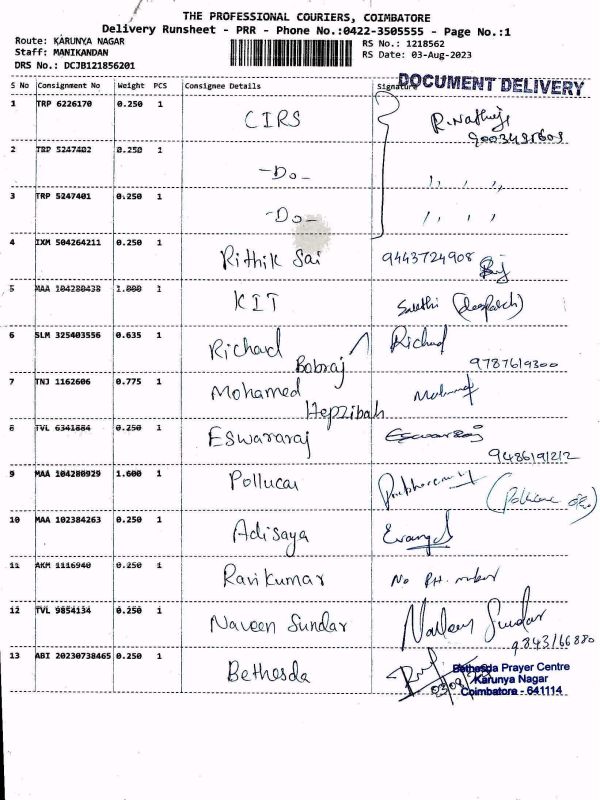 THE PROFESSIONAL COURIERS, COIMBATORE
Delivery Runsheet - PRR - Phone No.:0422-3505555 - Page No.:1
Route: KARUNYA NAGAR
RS No.: 1218562
Staff: MANIKANDAN
RS Date: 03-Aug-2023
DRS No.: DCJB121856201
DOCUMENT DELIVERY
S No Consignment No Weight PCS Consignee Details Signature
1 TRP 6226170 0.250 1 CIRS
2 TRP 5247402 0.250 1 -Do-
3 TRP 5247401 0.250 1 -Do-
4 IXM 504264211 0.250 1 Rithik Sai 9443724908
5 MAA 104280438 1.000 1 KIT (despatch)
6 SLM 325403556 0.635 1 Richard Bobraj Richard
9787619300
7 TNJ 1162606 0.775 1 Mohamed Hepzibah
8 TVL 6341884 0.250 1 Eswararaj Eswararaj
9486191212
9 MAA 104280929 1.600 1 Pollucai
10 MAA 102384263 0.250 1 Adisaya
11 AKM 1116940 0.250 1 Ravikumar No PH. number
12 TVL 9854134 0.250 1 Naveen Sundar Naveen Sundar
9843166880
13 ABI 20230738465 0.250 1 Bethesda
Bethesda Prayer Centre
Karunya Nagar
Coimbatore - 641114